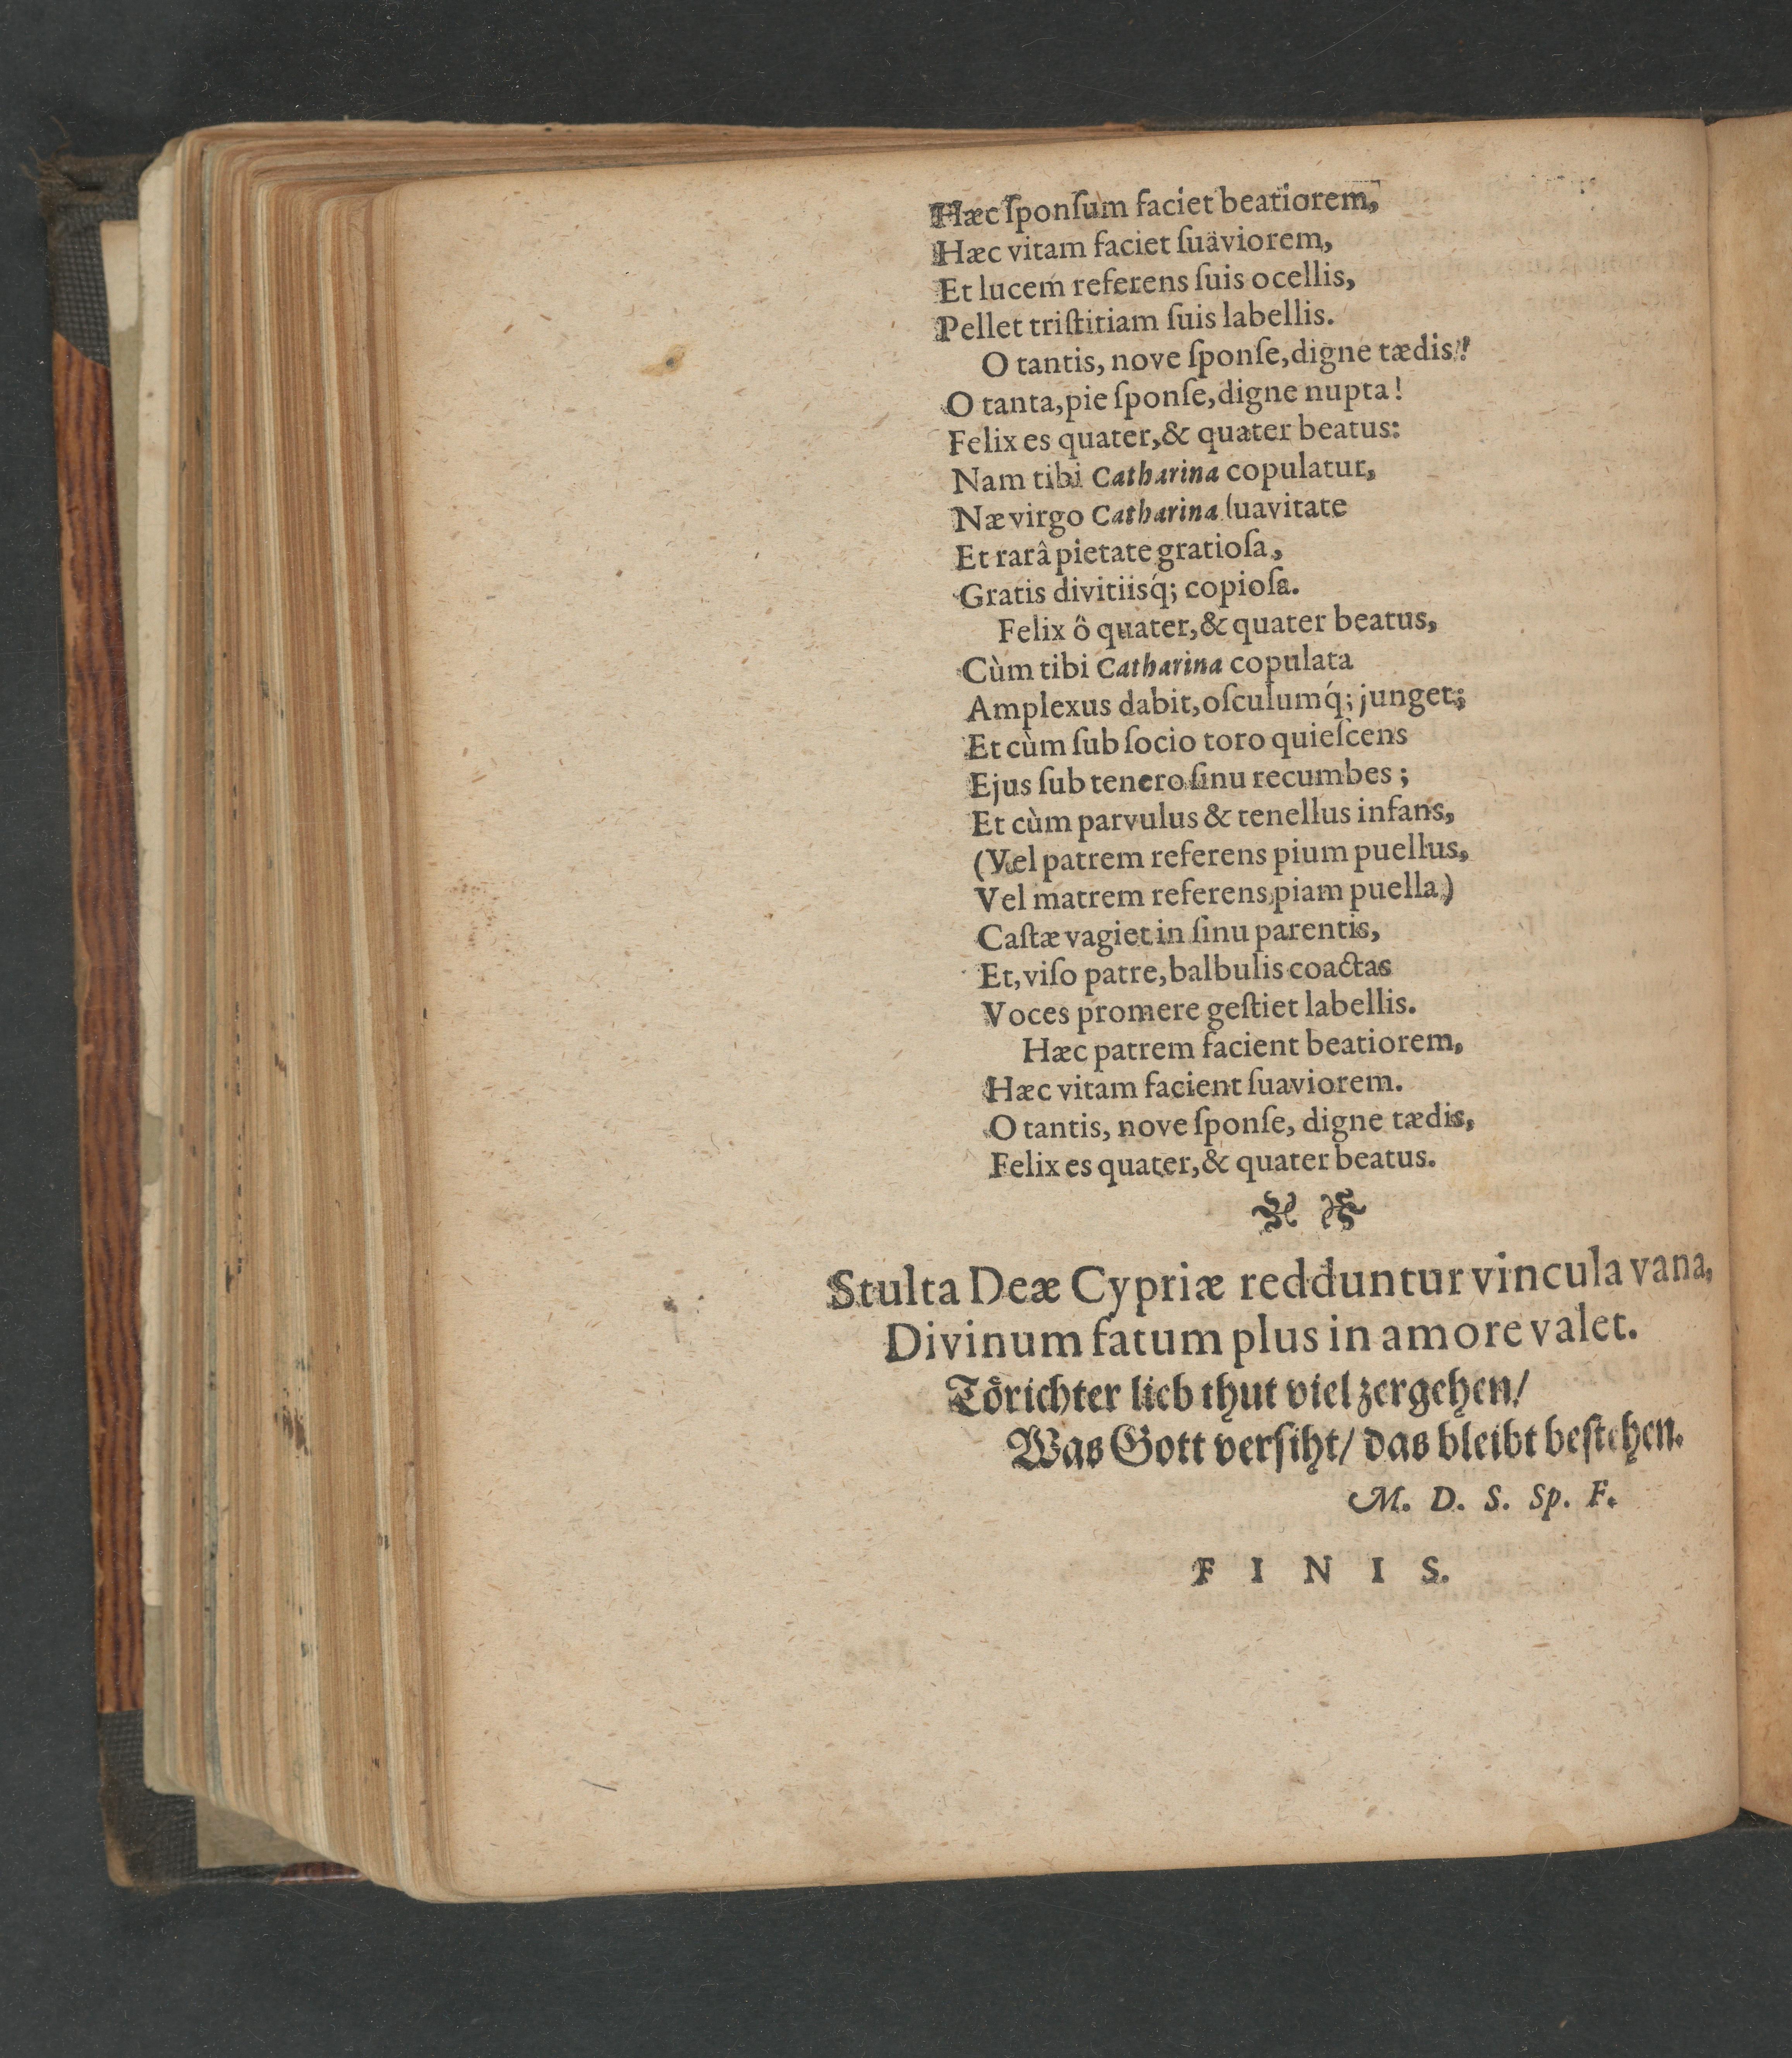 Hæc ſponſum faciet beatiorem,
Hæc vitam faciet ſuaviorem,
Et lucem referens ſuis ocellis,
Pellet triſtitiam ſuis labellis.
O tantis, nove ſponſe, digne tædis!
O tanta, pie ſponſe, digne nupta!
Felix es quater, & quater beatus:
Nam tibi Catharina copulatur,
Næ virgo Catharina ſuavitate
Et rarâ pietate gratioſa,
Gratis divitiisq́; copioſa.
Felix ô quater, & quater beatus,
Cùm tibi Catharina copulata
Amplexus dabit, oſculumq́; junget;
Et cùm ſub ſocio toro quieſcens
Ejus ſub tenero ſinu recumbes;
Et cùm parvulus & tenellus infans,
(Vel patrem referens pium puellus,
Vel matrem referens piam puella)
Caſtæ vagiet in ſinu parentis,
Et, viſo patre, balbulis coactas
Voces promere geſtiet labellis.
Hæc patrem facient beatiorem,
Hæc vitam facient ſuaviorem.
O tantis, nove ſponſe, digne tædis,
Felix es quater, & quater beatus.
Stulta Deæ Cypriæ redduntur vincula vana,
Divinum fatum plus in amore valet.
Törichter lieb thut viel zergehen/
Was Gott verſiht/ das bleibt beſtehen.
M. D. S. Sp. F.
F I N I S.